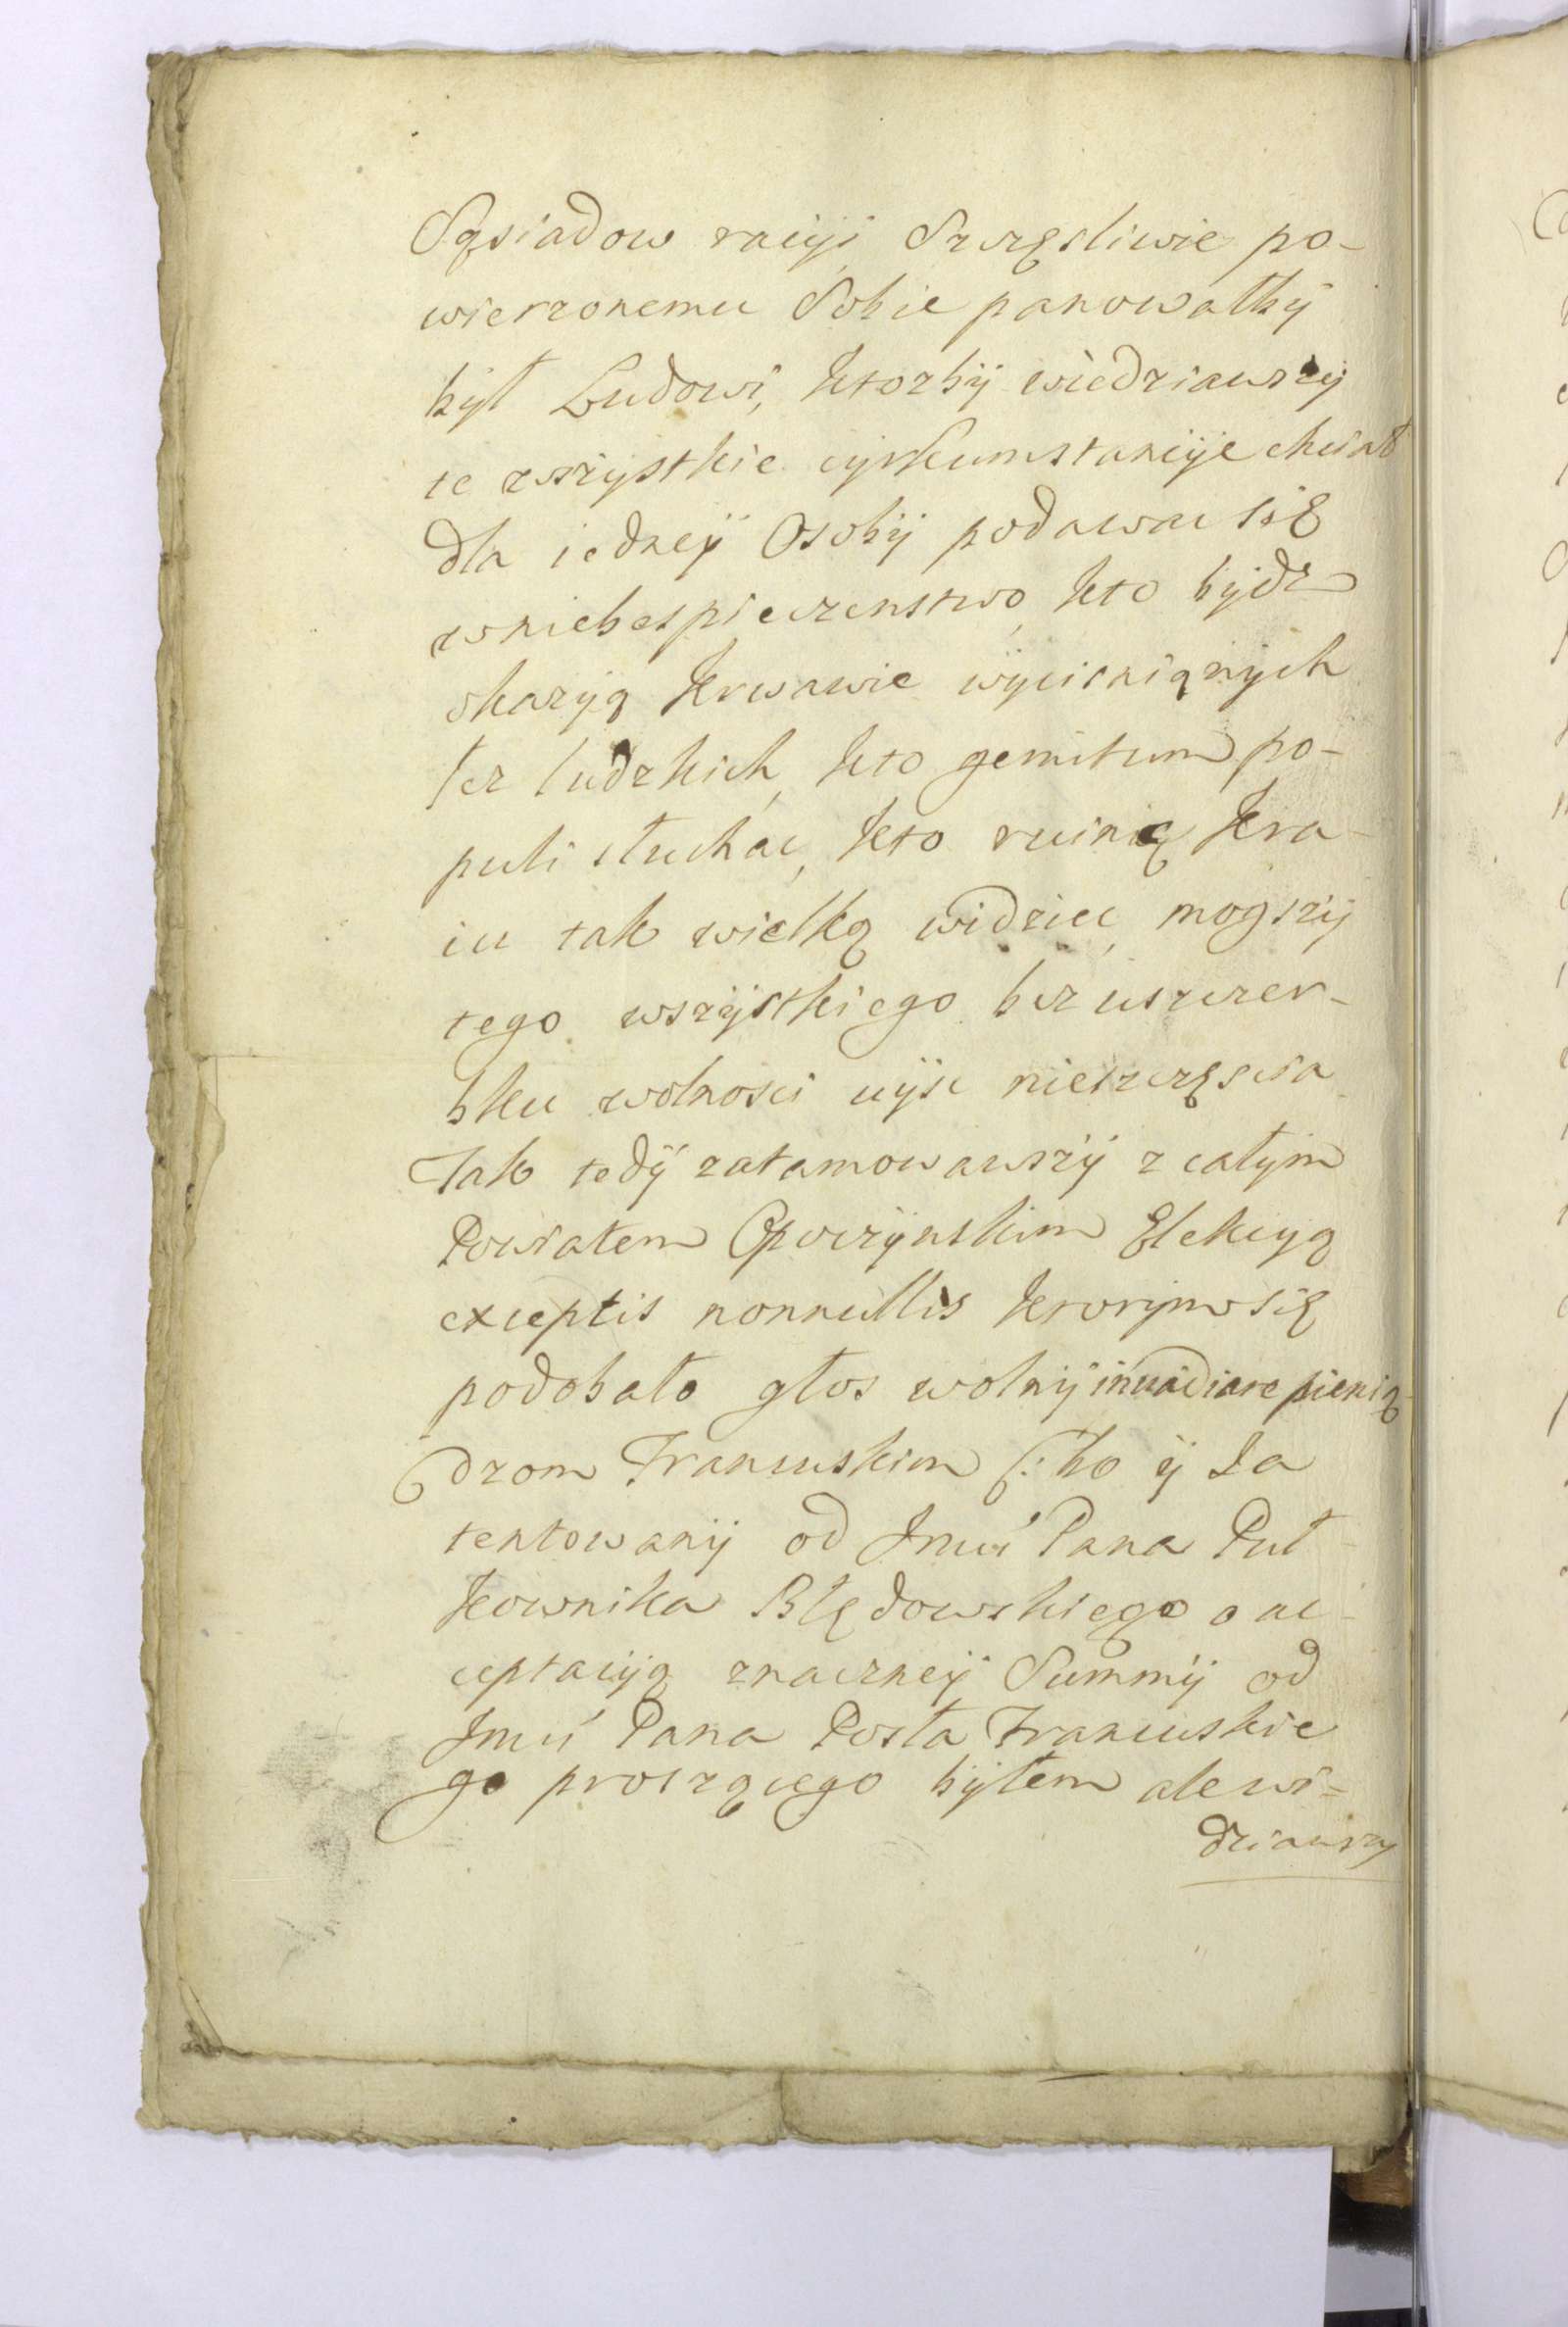 Sąsiadow racyi Szczęsliwie po-
wierzonemu Sobie panowałby
był Ludowi, ktorby wiedziawszy
te wszystkie cyrkumstancye chciał
dla iedney Osoby podawac się
w niebespieczenstwo, kto bydz
okazyą krwawie wycisniąnych
łez ludzkich, kto gemitum po-
puli słuchac, kto ruinę kra-
iu tak wielką widziec, mogszy
tego wszystkiego bez uszczer-
bku wolnosci uysc nieszczęscia
Tak tedy zatamowawszy z całym
Powiatem Opoczynskim Elekcyą
exceptis nonnullis ktorym się
podobało głos wolny invadiare pienię
dzom Francuskim /: bo y Ja
tentowany od Jmci Pana Puł-
kownika Błędowskiego o ac-
ceptacyą znaczney Summy od
Jmci Pana Posła Francuskie
go proszącego byłem ale wi=
dziawszy